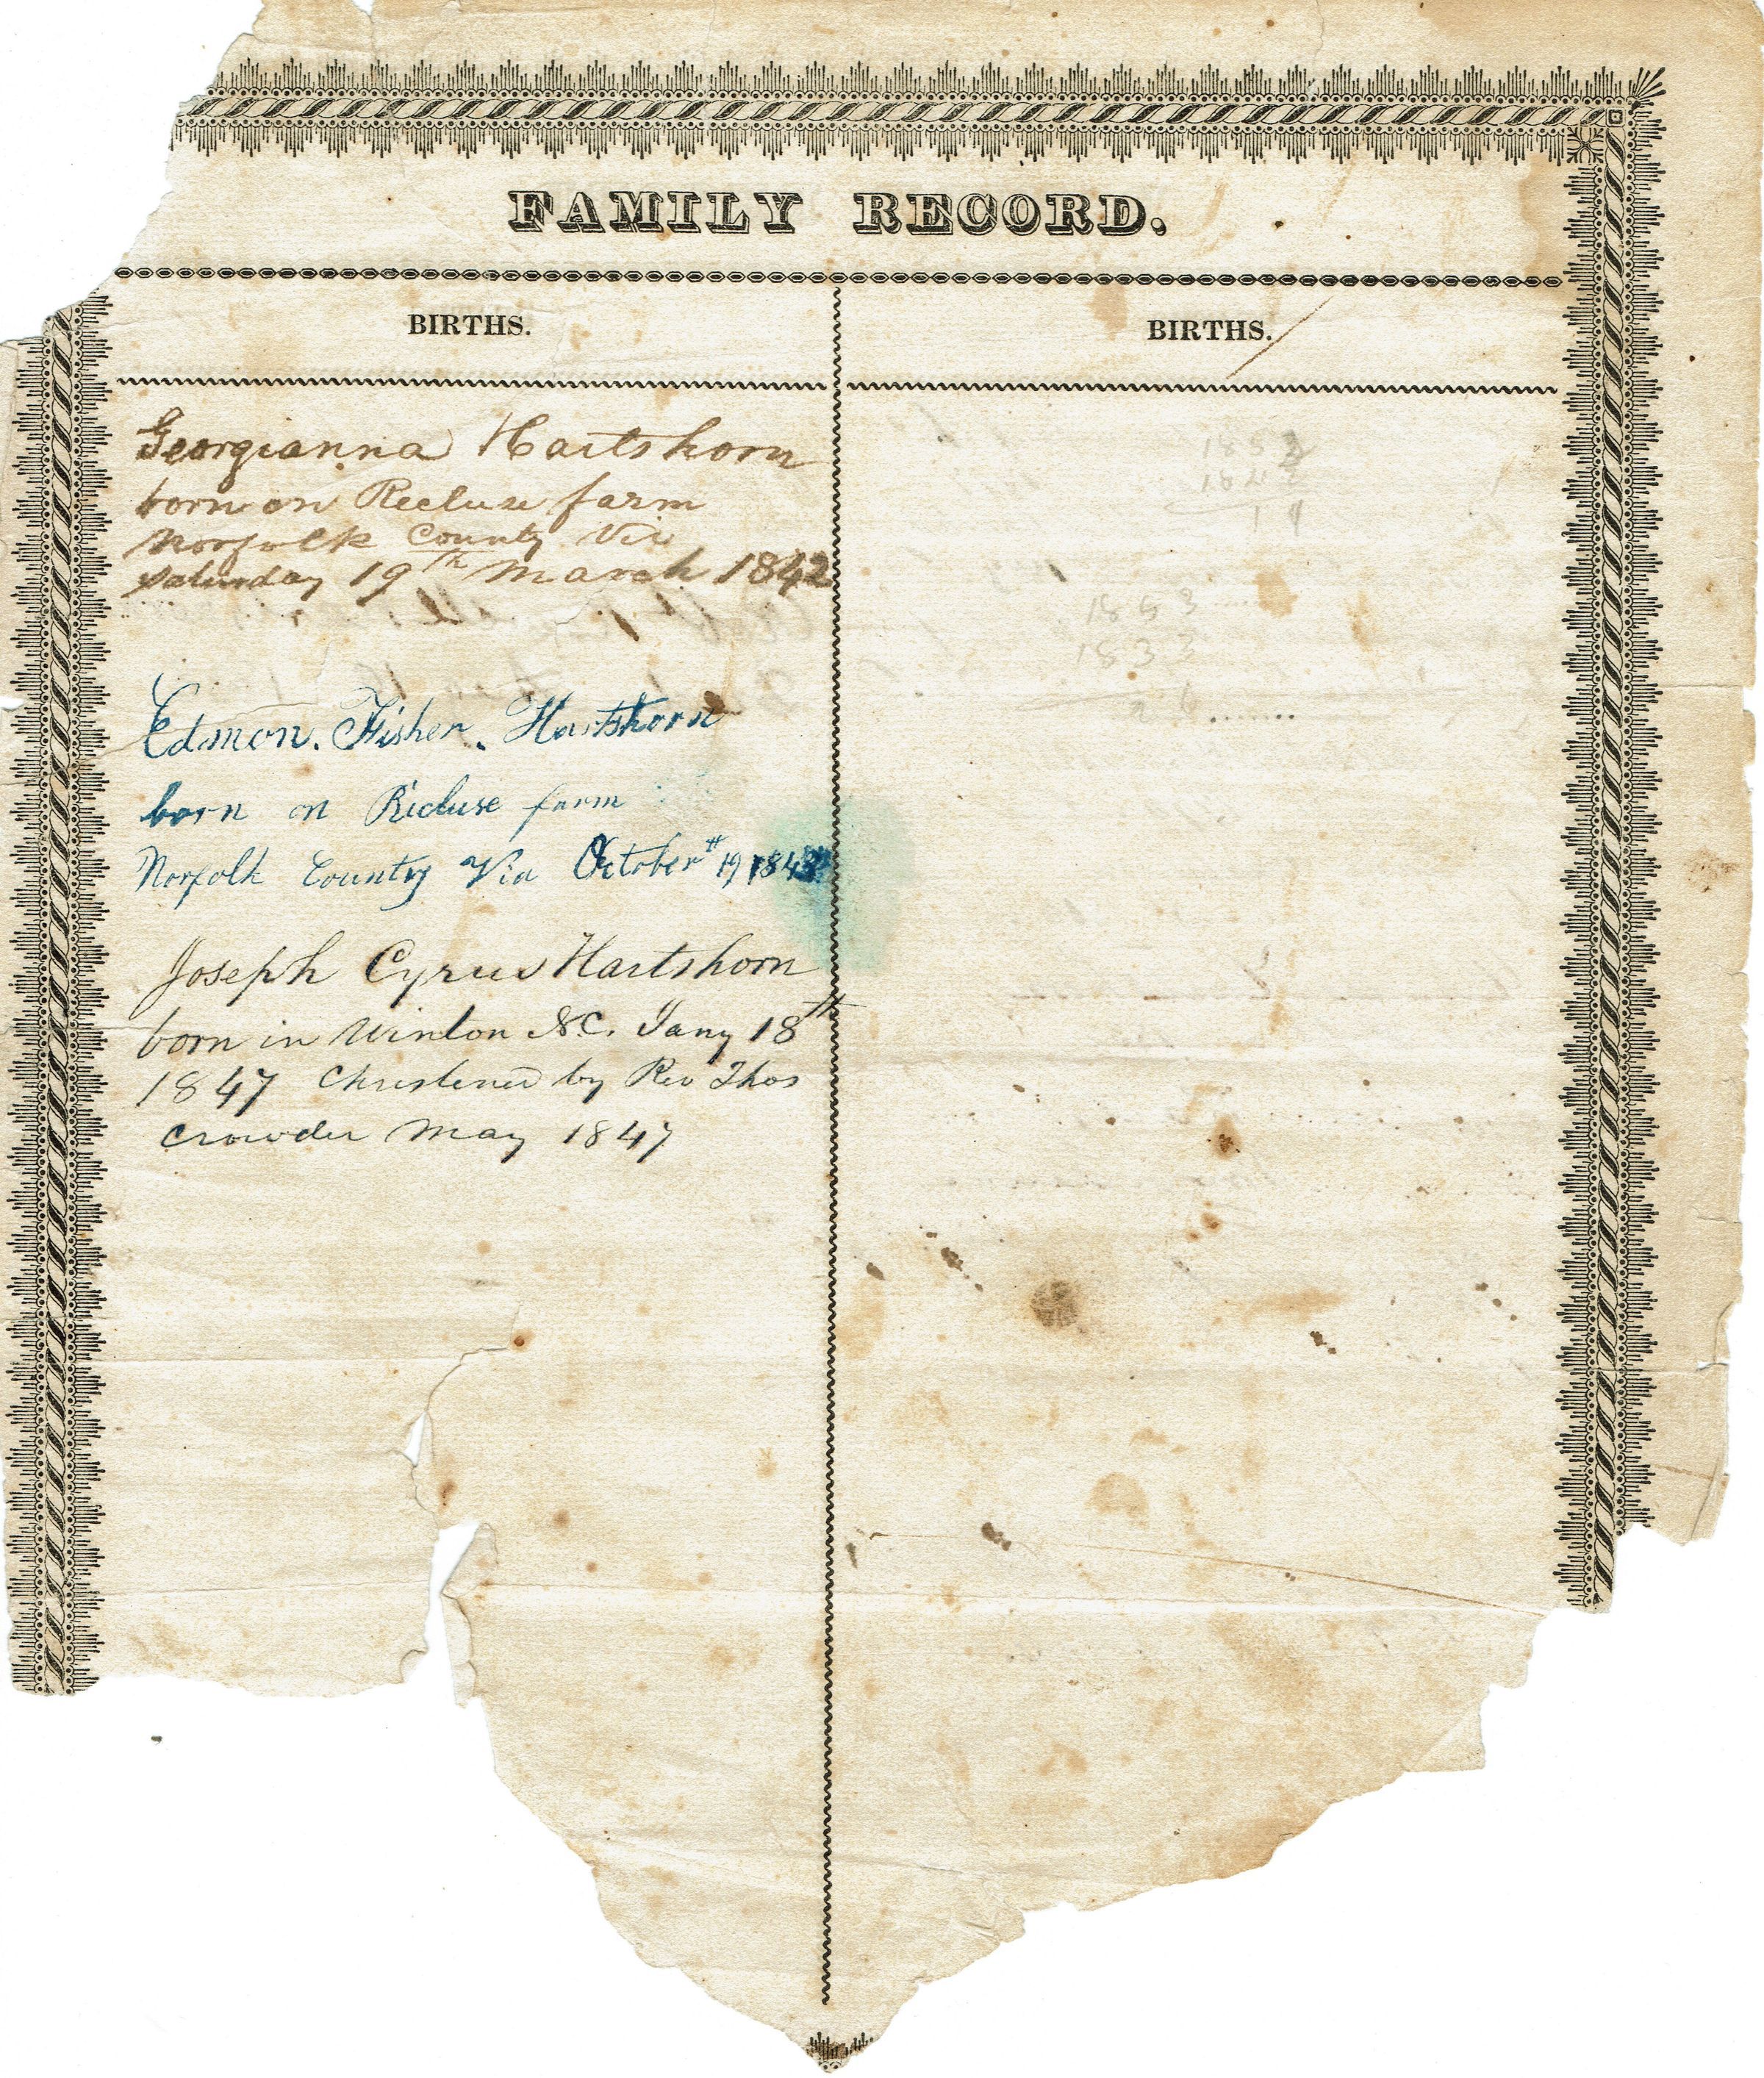 FAMILY RECORD.
BIRTHS.
Georgianna Hartshorn
born on Recluse farm
Norfolk County Via
Saturday 19th March 1842
Edmon. Fisher. Hartshorn
born on Recluse farm
Norfolk County Via October 19
Joseph Cyrus Hartshorn
born in Winton NC. Jany 18th
1847 Christened by Rev Thos
Crowder May 1847
BIRTHS.
1853
1842
11
1853
1833